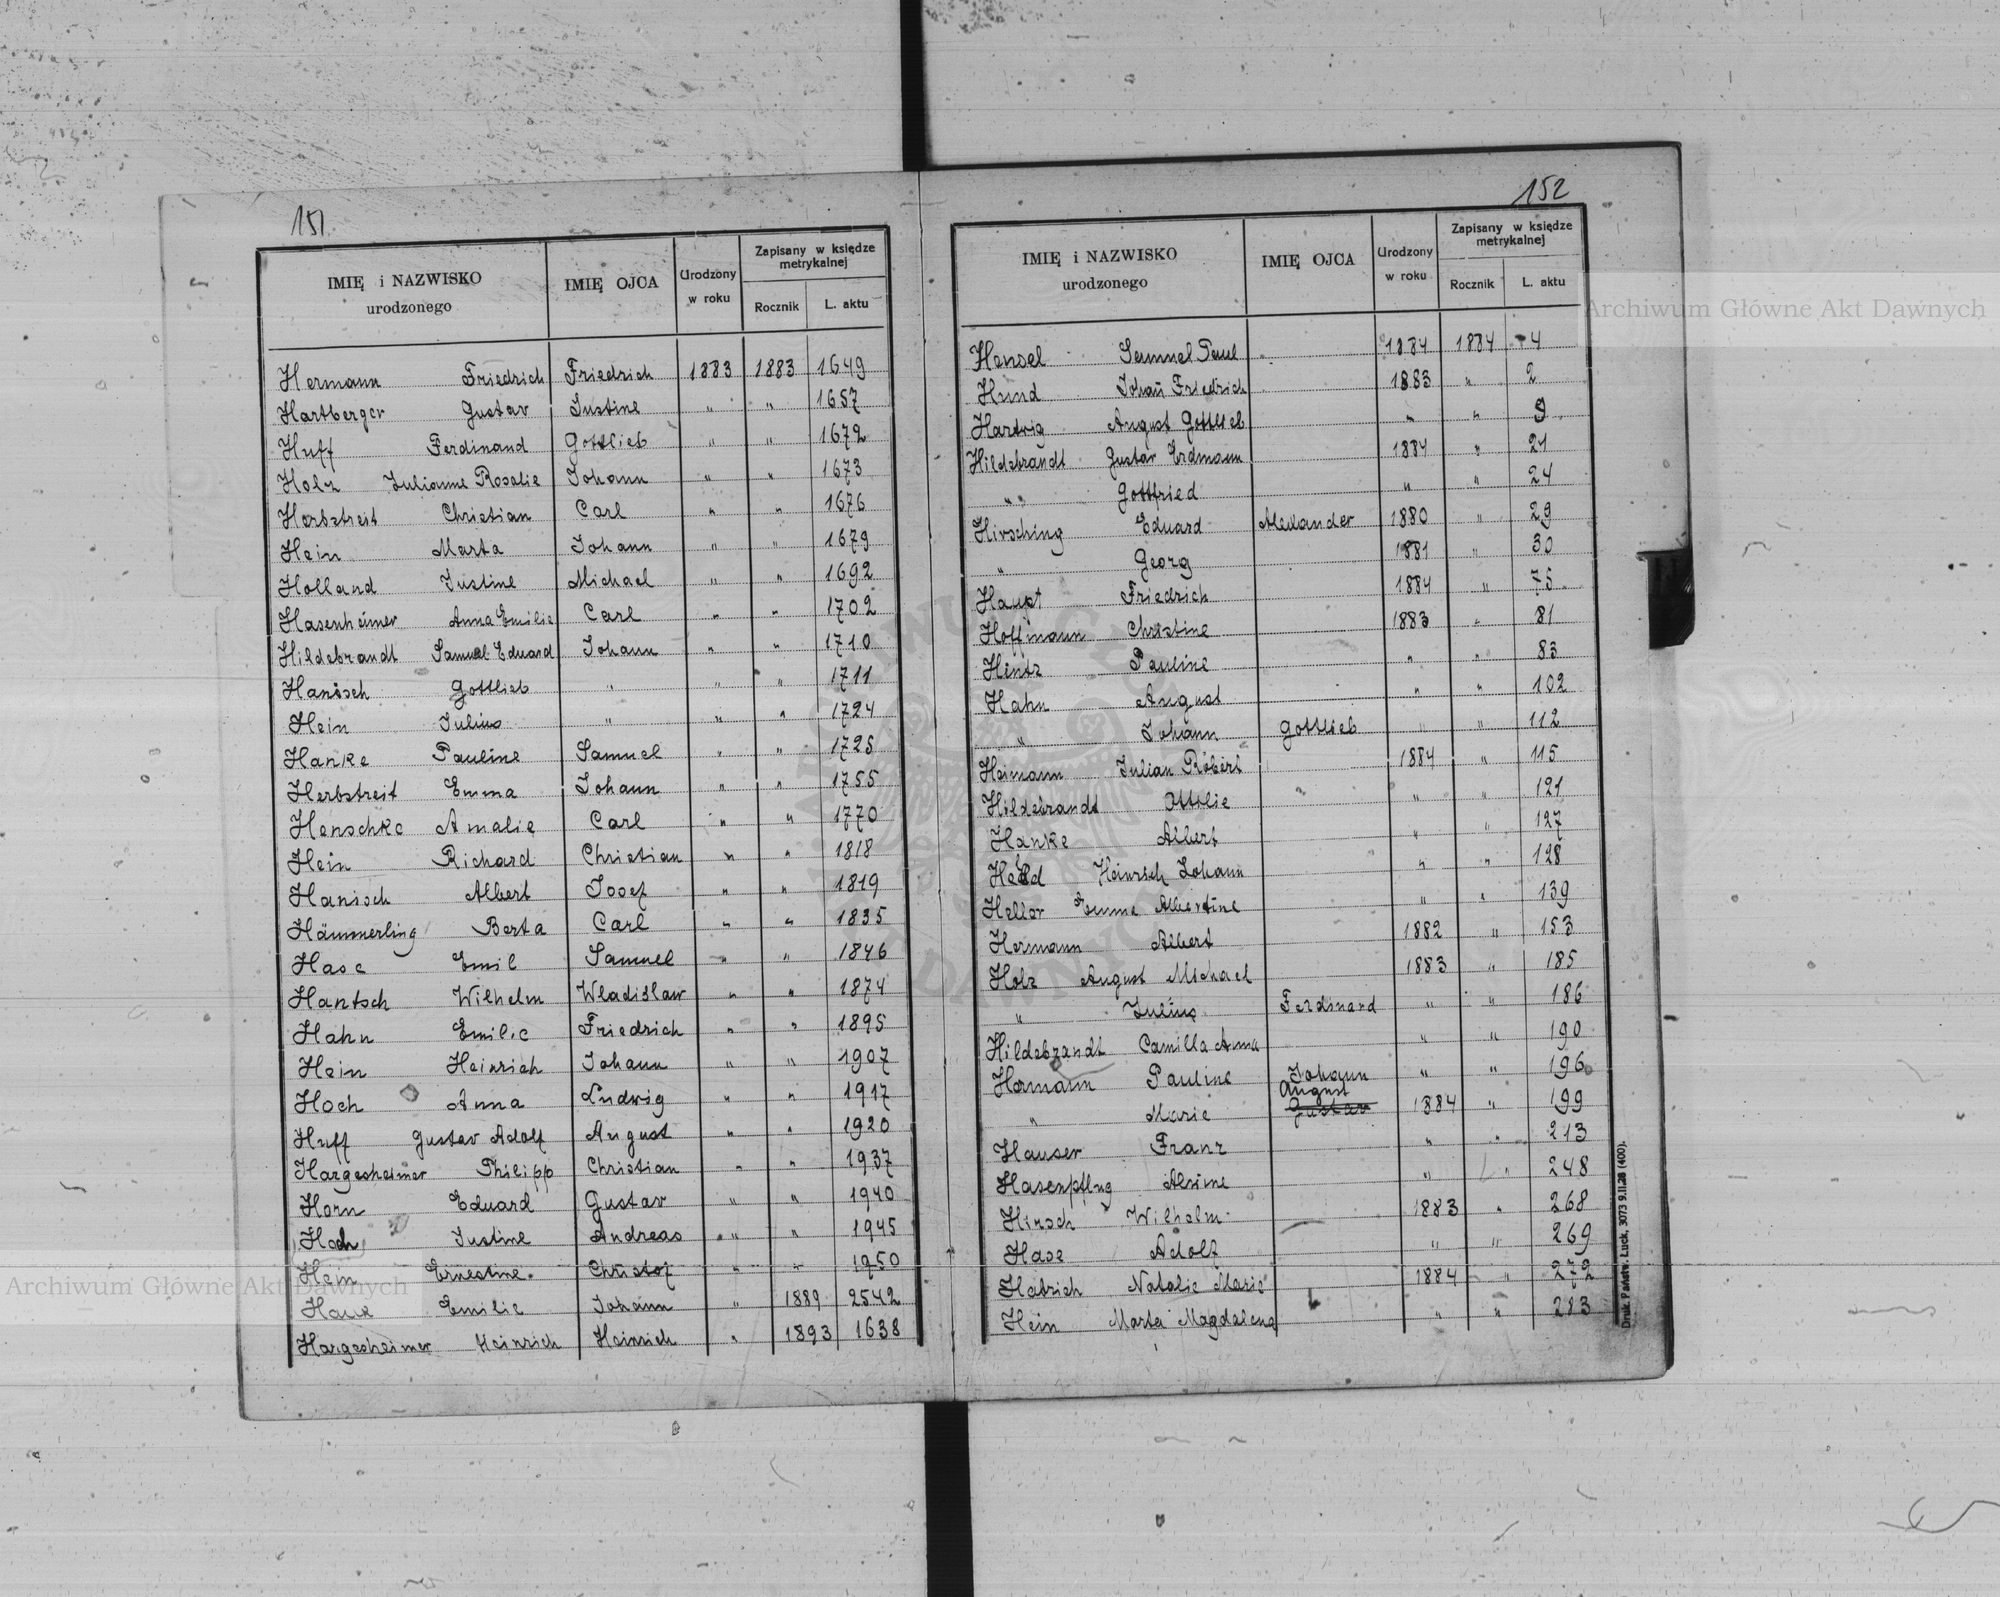 151.
IMIĘ i NAZWISKO urodzonego IMIĘ OJCA Urodzony w roku Zapisany w księdze metrykalnej Rocznik L. aktu
Hermann Friedrich Friedrich 1883 1883 1649
Hartberger Gustav Justine " " 1657
Huff Ferdinand Gottlieb " " 1672
Holz Julianne Rosalie Johann " " 1673
Herbstreit Christian Carl " " 1676
Hein Marta Johann " " 1679
Holland Justine Michael " " 1692
Hasenheimer Anna Emilie Carl " " 1702
Hildebrandt Samuel Eduard Johann " " 1710
Hanisch Gottlieb " " " 1711
Hein Julius " " " 1724
Hanke Pauline Samuel " " 1725
Herbstreit Emma Johann " " 1755
Henschke Amalie Carl " " 1770
Hein Richard Christian " " 1818
Hanisch Albert Josef " " 1819
Hämmerling Berta Carl " " 1835
Hase Emil Samuel " " 1846
Hantsch Wilhelm Wladislaw " " 1874
Hahn Emilie Friedrich " " 1895
Hein Heinrich Johann " " 1907
Hoch Anna Ludwig " " 1917
Huff Gustav Adolf August " " 1920
Hargesheimer Philipp Christian " " 1937
Horn Eduard Gustav " " 1940
Hoch Justine Andreas " " 1945
Hein Ernestine Christof " " 1950
Emilie Johann " 1889 2542
Hargesheimer Heinrich Heinrich " 1893 1638
152
IMIĘ i NAZWISKO urodzonego IMIĘ OJCA Urodzony w roku Zapisany w księdze metrykalnej Rocznik L. aktu
Hensel Samuel Paul 1884 1884 4
Hund Johañ Friedrich 1883 " 2
Hartwig August Gottlieb " " 9
Hildebrandt Gustav Erdmann 1884 " 21
" " Gottfried " " 24
Hirsching Eduard Alexander 1880 " 29
" Georg 1881 " 30
Haupt Friedrich 1884 " 75
Hoffmann Christine 1883 " 81
Hentz Pauline " " 83
Hahn August " " 102
" Johann Gottlieb " " 112
Heimann Julian Robert 1884 " 115
Hildebrandt Ottilie " " 121
Hanke Albert " " 127
Johann " " 128
Heller Emma Albertine " " 139
Hermann Albert 1882 " 153
Holz August Michael 1883 " 185
" Julius Ferdinand " " 186
Hildebrandt Camilla Anna " " 190
Hermann Pauline Johann " " 196
" Marie August Gustav 1884 " 199
Hauser Franz " " 213
Hasenpflug Alwine " " 248
Hirsch Wilhelm 1883 " 268
Hase Adolf " " 269
Natalie Marie 1884 " 272
Hein Marta Magdalena " " 283
Druk. Państw. Łuck, 3073 9.II.28 (400).
Archiwum Główne Akt Dawnych
Archiwum Główne Akt Dawnych